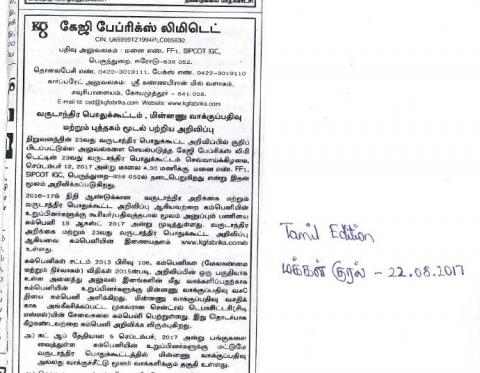 KG கேஜி பேப்ரிக்ஸ் லிமிடெட்
CIN: U65999TZ1994PLC005630
பதிவு அலுவலகம் : மனை எண். FF1, SIPCOT IGC,
பெருந்துறை, ஈரோடு-638 052.
தொலைபேசி எண். 0422-3019111. பேக்ஸ் எண். 0422-3019110
கார்ப்பரேட் அலுவலகம்: ஸ்ரீ கண்ணபிரான் மில் வளாகம்,
சவுரிபாளையம், கோயமுத்தூர் - 641 028.
E-mail Id: csd@kgfabriks.com Website: www.kgfabriks.com
வருடாந்திர பொதுக்கூட்டம் , மின்னணு வாக்குப்பதிவு
மற்றும் புத்தகம் மூடல் பற்றிய அறிவிப்பு
நிறுவனத்தின் 23வது வருடாந்திர பொதுக்கூட்ட அறிவிப்பில் குறிப்
பிடப்பட்டுள்ள அலுவல்களை செயல்படுத்த கேஜி பேப்ரிக்ஸ் லிமி
டெட்டின் 23வது வருடாந்திர பொதுக்கூட்டம் செவ்வாய்க்கிழமை,
செப்டம்பர் 12, 2017 அன்று மாலை 4.30 மணிக்கு, மனை எண். FF1,
SIPCOT IGC, பெருந்துறை-638 052ல் நடைபெறுகிறது என்று இதன்
மூலம் அறிவிக்கப்படுகிறது.
2016-17ன் நிதி ஆண்டுக்கான வருடாந்திர அறிக்கை மற்றும்
வருடாந்திர பொதுக்கூட்ட அறிவிப்பு ஆகியவற்றை கம்பெனியின்
உறுப்பினர்களுக்கு கூரியர்/பதிவுத்தபால் மூலம் அனுப்பும் பணியை
கம்பெனி 18 ஆகஸ்ட் 2017 அன்று முடித்துள்ளது. வருடாந்திர
அறிக்கை மற்றும் வருடாந்திர பொதுக்கூட்ட அறிவிப்பு
ஆகியவை கம்பெனியின் இணையதளம் www.kgfabriks.comல்
உள்ளது.
கம்பெனிகள் சட்டம் 2013 பிரிவு 108, கம்பெனிகள் (மேலாண்மை
மற்றும் நிர்வாகம்) விதிகள் 2015ன்படி, அறிவிப்பின் ஒரு பகுதியாக
உள்ள அனைத்து அலுவல் இனங்களின் மீது வாக்களிப்பதற்காக
கம்பெனியின் உறுப்பினர்களுக்கு மின்னணு வாக்குப்பதிவு வசதி
யை கம்பெனி அளிக்கிறது. மின்னணு வாக்குப்பதிவு வசதிக்
காக அங்கீகரிக்கப்பட்ட முகவரான சென்ட்ரல் டெபாசிட்டரி(சிடி
எஸ்எல்)யின் சேவைகளை கம்பெனி பெற்றுள்ளது. இது தொடர்பாக
கீழ்கண்டவற்றை கம்பெனி அறிவிக்க விரும்புகிறது.
அ) கட் ஆப் தேதியான 5 செப்டம்பர், 2017 அன்று பங்குகளை
வைத்துள்ள கம்பெனியின் உறுப்பினர்களுக்கு மட்டுமே
வருடாந்திர பொதுக்கூட்டத்தில் மின்னணு வாக்குப்பதிவு
அல்லது வாக்குச்சீட்டு மூலம் வாக்களிக்கும் தகுதி உள்ளது.
Tamil Edition
மக்கள் குரல் - 22.08.2017